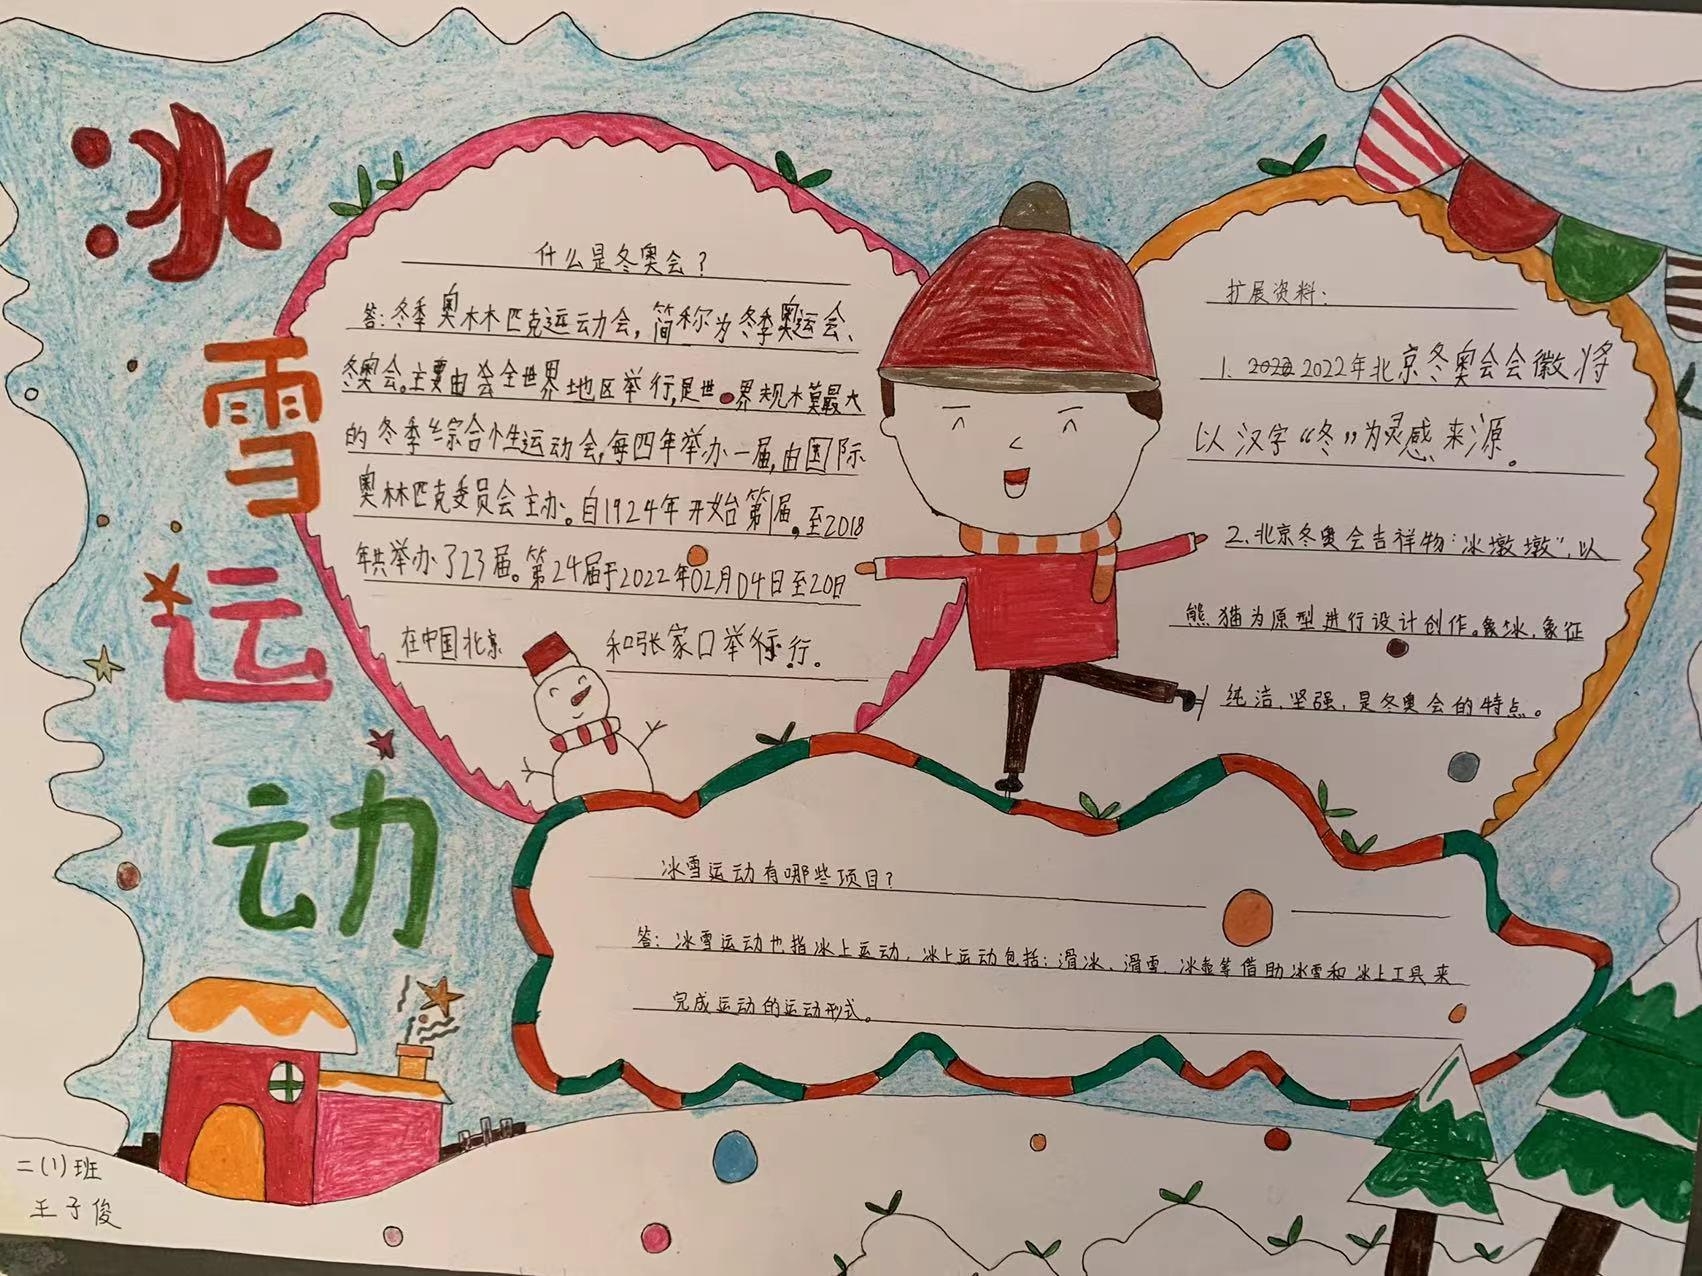 冰
雪
运
动
什么是冬奥会?
答:冬季奥林匹克运动会,简称为冬季奥运会、
冬奥会。主要由全世界地区举行,是世界规模最大
的冬季综合性运动会,每四年举办一届,由国际
奥林匹克委员会主办。自1924年开始第1届。至2018
年共举办了23届。第24届于2022年02月04日至20日
在中国北京 和张家口举行。
扩展资料:
1、2022年北京冬奥会会徽将
以汉字“冬”为灵感来源。
2、北京冬奥会吉祥物:冰墩墩”,以
熊猫为原型进行设计创作。象冰,象征
纯洁、坚强,是冬奥会的特点。
冰雪运动有哪些项目?
答:冰雪运动也指冰上运动,冰上运动包括:滑冰、滑雪、冰壶等借助冰雪和冰上工具来
完成运动的运动形式。
二(1)班
王子俊